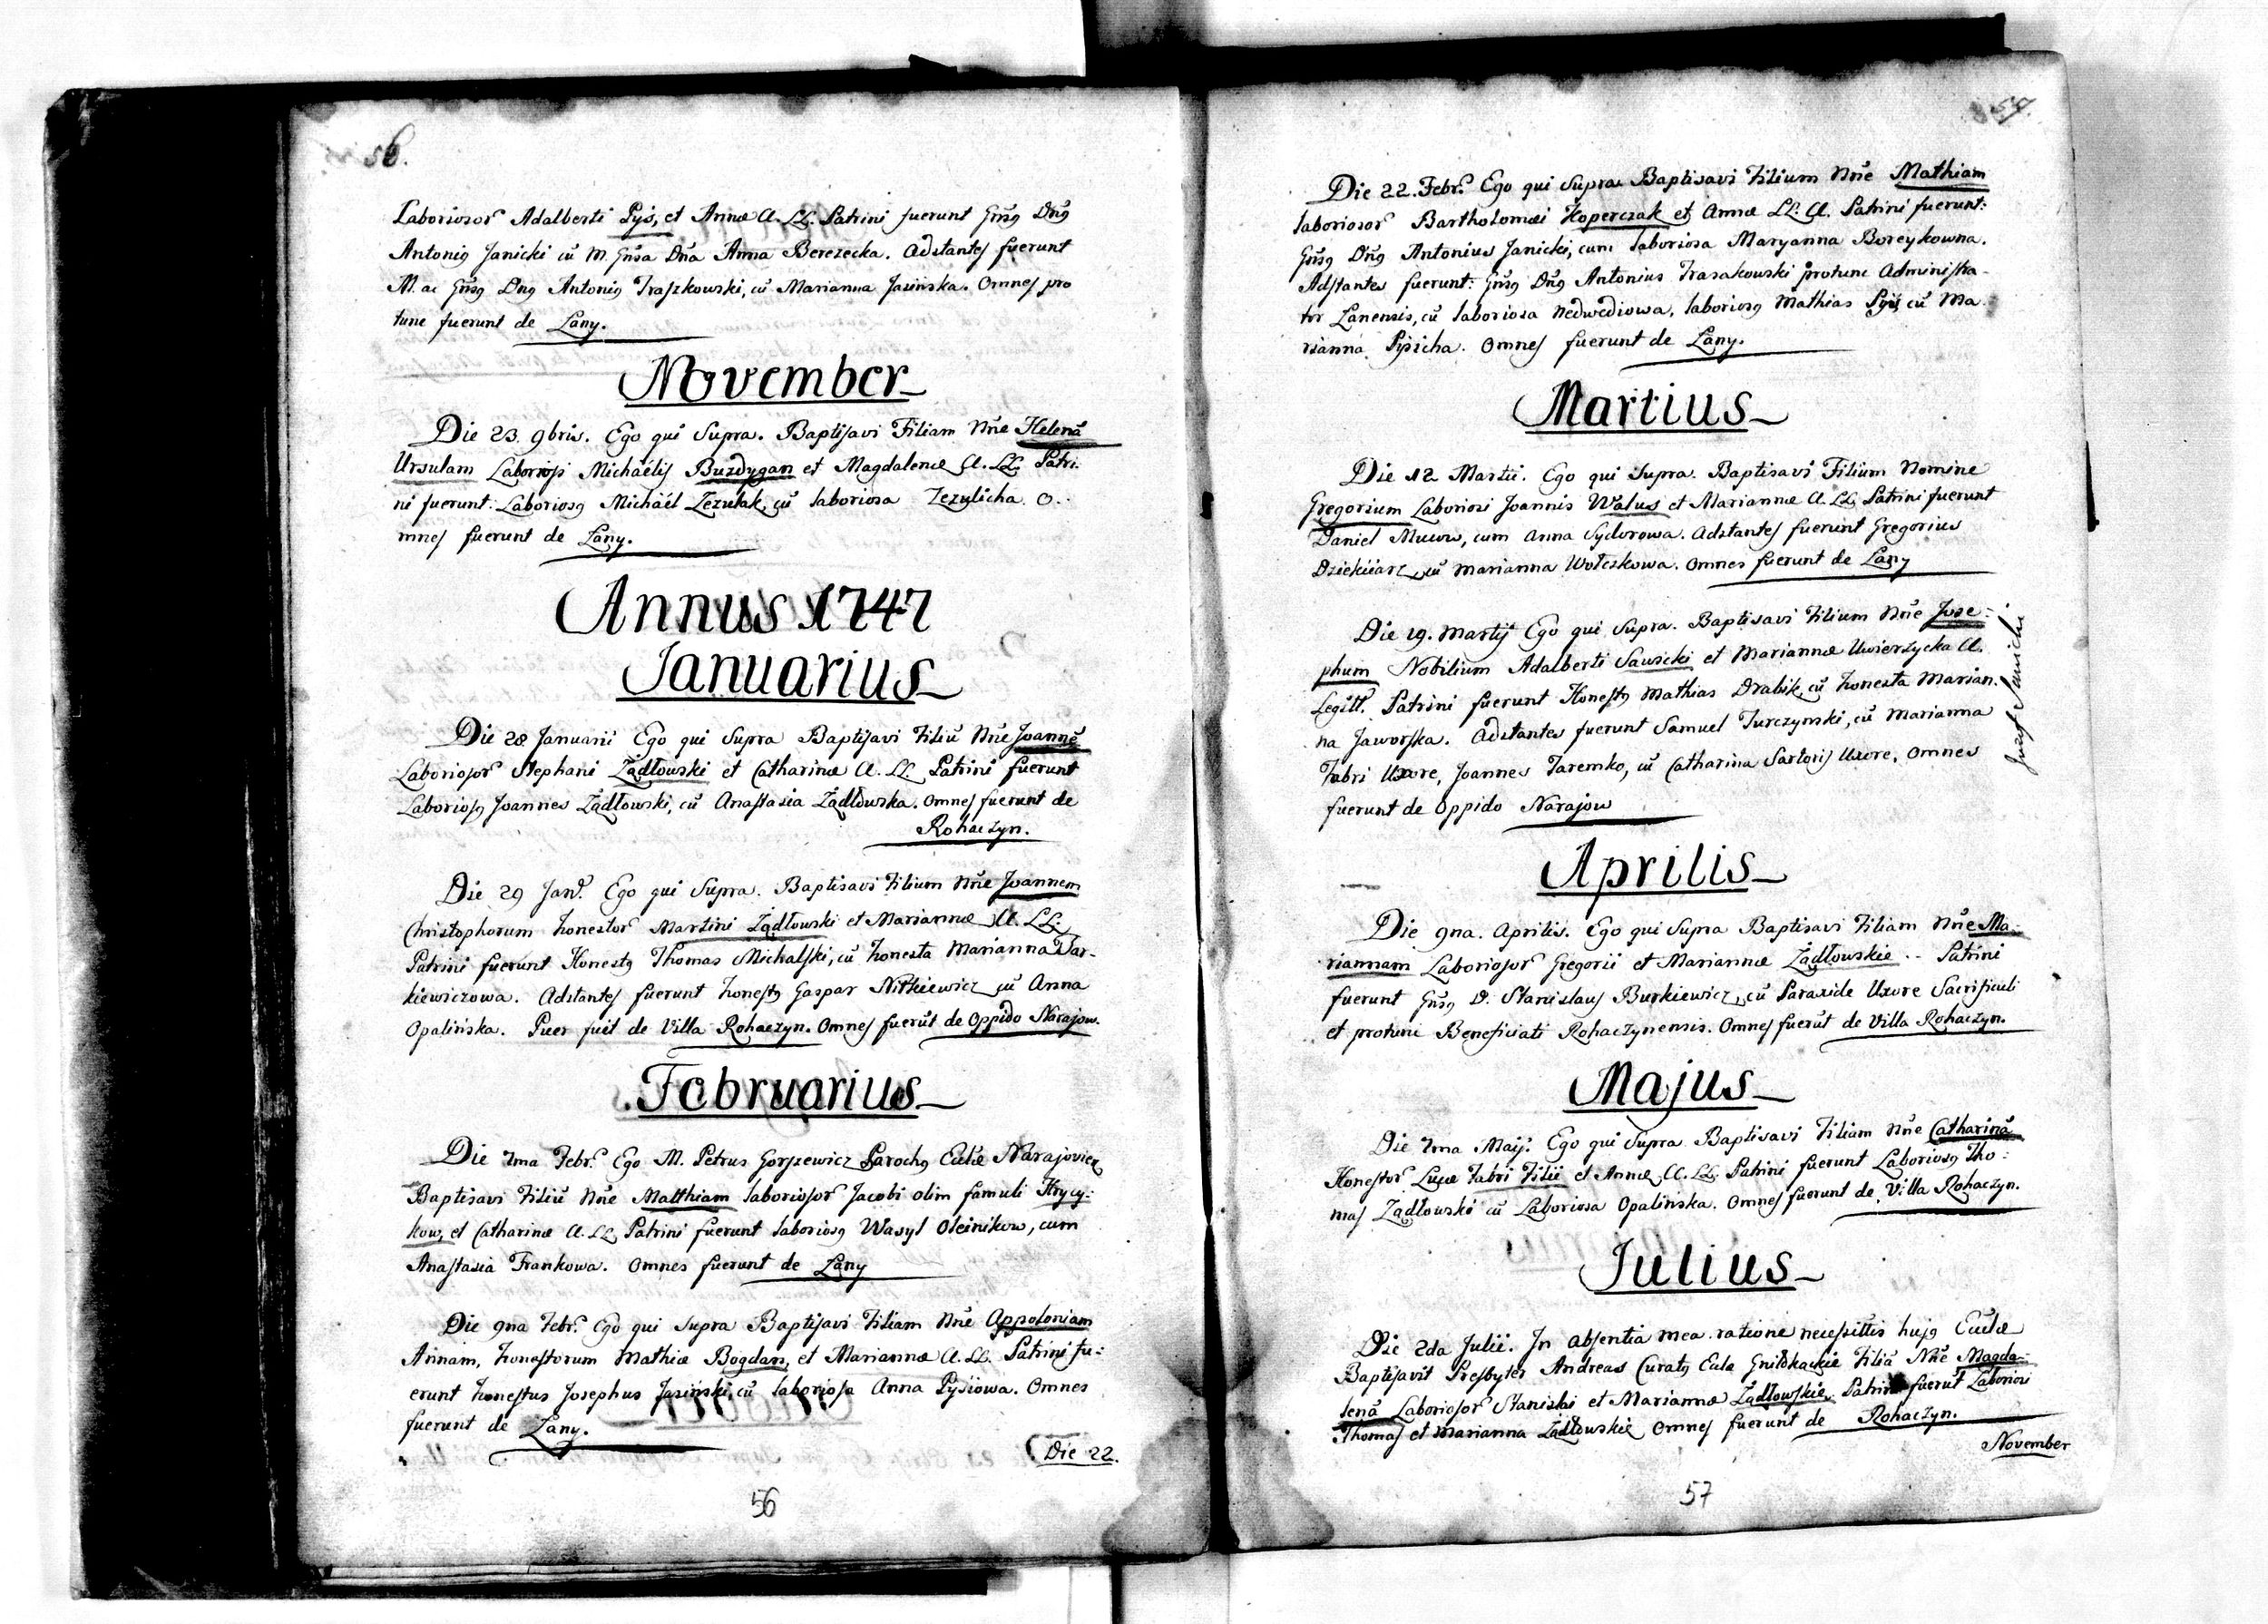 56.
Laboriosor Adalberti Pys, et Annæ C. LL. Patrini fuerunt Gñsq Dñq
Antoniq Janicki cũ M. Gñsa Dña Anna Berezecka. Adstantes fuerunt
M. ac Gñsq Dnq Antoniq Traszkowski, cũ Marianna Jasinska. Omnes pro
tunc fuerunt de Lany.
November
Die 23. 9bris. Ego qui Supra. Baptisavi Filiam Nñe Helenã
Ursulam Laboriosi Michaëlis Buzdygan et Magdalenæ C. LL. Patri-
ni fuerunt: Laboriosq Michäel Zezulak, cũ laboriosa Zezulicha. O-
mnes fuerunt de Lany.
Annus 1747
Januarius
Die 28 Januarii Ego qui Supra Baptisavi Filiũ Nñe Joannẽ
Laboriosor Stephani Ządłowski et Catharinæ C. LL. Patrini fuerunt
Laboriosq Joannes Ządłowski, cũ Anastasia Ządłowska. Omnes fuerunt de
Rohaczyn.
Die 29 Janr. Ego qui Supra. Baptisavi Filium Nñe Joannem
Christophorum honestor Martini Ządłowski et Mariannæ C. LL.
Patrini fuerunt Honestq Thomas Michalski, cũ honesta Marianna Tar-
kiewiczowa. Adstantes fuerunt honestq Gaspar Nitkiewicz cũ Anna
Opalińska. Puer fuit de Villa Rohaczyn. Omnes fuerũt de Oppido Narajow.
Februarius
Die 7ma Febr. Ego M. Petrus Gorszewicz Parochq Eccłæ Narajovien
Baptisavi Filiũ Nñe Matthiam laboriosor Jacobi olim famuli Hrycy-
kow, et Catharinæ C. LL. Patrini fuerunt laboriosq Wasyl Oleinikow, cum
Anastasia Frankowa. Omnes fuerunt de Lany
Die 9na Febr. Ego qui Supra Baptisavi Filiam Nñe Appoloniam
Annam, honestorum Mathiæ Bogdan, et Mariannæ C. LL. Patrini fu-
erunt honestus Josephus Jasiński, cũ laboriosa Anna Pysiowa. Omnes
fuerunt de Lany.
Die 22.
56
57.
Die 22. Febr. Ego qui Supra Baptisavi Filium Nñe Mathiam
laboriosor Bartholomæi Koperczak et Annæ LL. C. Patrini fuerunt:
Gñsq Dñq Antonius Janicki, cum laboriosa Maryanna Boreykowna.
Adstantes fuerunt: Gñsq Dñq Antonius Trasakowski protunc Administra-
tor Lanensis, cũ laboriosa Nedwediowa, laboriosq Mathias Pys, cũ Ma-
rianna Pysicha. Omnes fuerunt de Lany.
Martius
Die 12 Martii. Ego qui Supra. Baptisavi Filium Nomine
Gregorium Laboriosi Joannis Walus et Mariannæ C. LL. Patrini fuerunt
Daniel Mucow, cum Anna Sydorowa. Adstantes fuerunt Gregorius
Dziekciarz, cũ Marianna Wołczkowa. Omnes fuerunt de Lany
Die 19. Martij Ego qui Supra. Baptisavi Filium Nñe Jose-
phum Nobilium Adalberti Sawicki et Mariannæ Uwierzycka C.
Legitt. Patrini fuerunt Honestq Mathias Drabik, cũ honesta Marian-
na Jaworska. Adstantes fuerunt Samuel Turczynski, cũ Marianna
Fabri Uxore, Joannes Jaremko, cũ Catharina Sartoris Uxore. Omnes
fuerunt de Oppido Narajow
Jozef Sawicki
Aprilis
Die 9na. Aprilis. Ego qui Supra Baptisavi Filiam Nñe Ma-
riannam Laboriosor Gregorii et Mariannæ Ządłowskie. Patrini
fuerunt Gñsq D. Stanislaus Burkiewicz, cũ Paraxide Uxore Sacrificuli
et protunc Beneficiati Rohaczynensis. Omnes fuerũt de Villa Rohaczyn.
Majus
Die 7ma Maij. Ego qui Supra Baptisavi Filiam Nñe Catharinã
Honestor Lucæ Fabri Filii et Annæ, C. LL. Patrini fuerunt Laboriosq Tho-
mas Ządłowski cũ Laboriosa Opalinska. Omnes fuerunt de Villa Rohaczyn.
Julius
Die 2da Julii. In absentia mea ratione necessittis hujq Eccłæ
Baptisavit Presbyter Andreas Curatq Eccłæ Gniłskackie Filiã Nñe Magda-
lenã Laboriosor Stanislai et Mariannæ Ządłowskie. Patrini fuerũt Laboriosi
Thomas et Marianna Ządłowskie Omnes fuerunt de Rohaczyn.
November
57